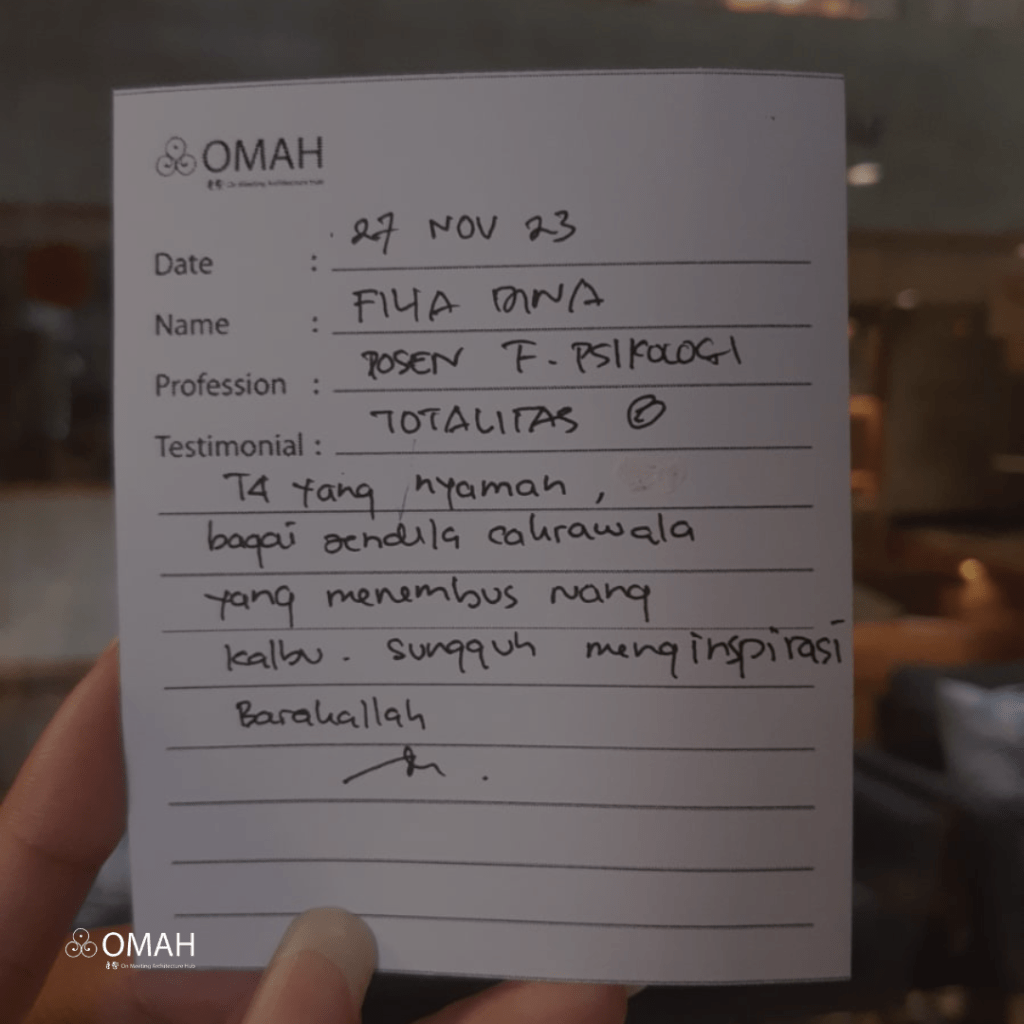 OMAH
On Meeting Architecture Hub
Date : 27 NOV 23
Name : FILIA DINA
Profession : DOSEN F. PSIKOLOGI
Testimonial : TOTALITAS
T4 yang nyaman,
bagai jendela cakrawala
yang menembus ruang
kalbu. sungguh menginspirasi
Barakallah
OMAH
On Meeting Architecture Hub